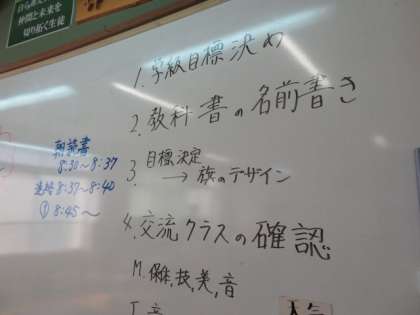 仲間と未来を
切り拓く生徒
1. 学級目標決め
2. 教科書の名前書き
朝読書
8:30～8:37
連絡 8:37～8:40
① 8:45～
3. 目標決定
→ 旗のデザイン
4. 交流クラスの確認
M. 保体, 技, 美, 音